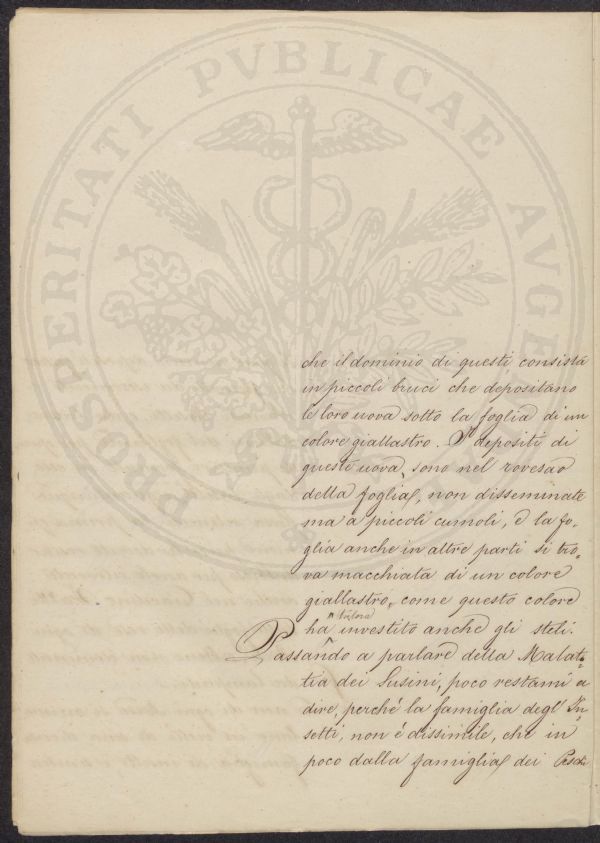 PROSPERITATI PVBLICAE AVGE
che il dominio di questi consista
in piccoli bruci che depositano
le loro uova sotto la foglia di un
colore giallastro. I depositi di
queste uova, sono nel rovescio
della foglia, non disseminate
ma a piccoli cumoli, e la fo„
glia anche in altre parti si tro„
va macchiata di un colore
giallastro, come questo colore
talora
ha investito anche gli steli.
Passando a parlare della Malat„
tia dei Susini, poco restami a
dire, perché la famiglia degl' In„
setti, non é dissimile, che in
poco dalla famiglia dei Peschi